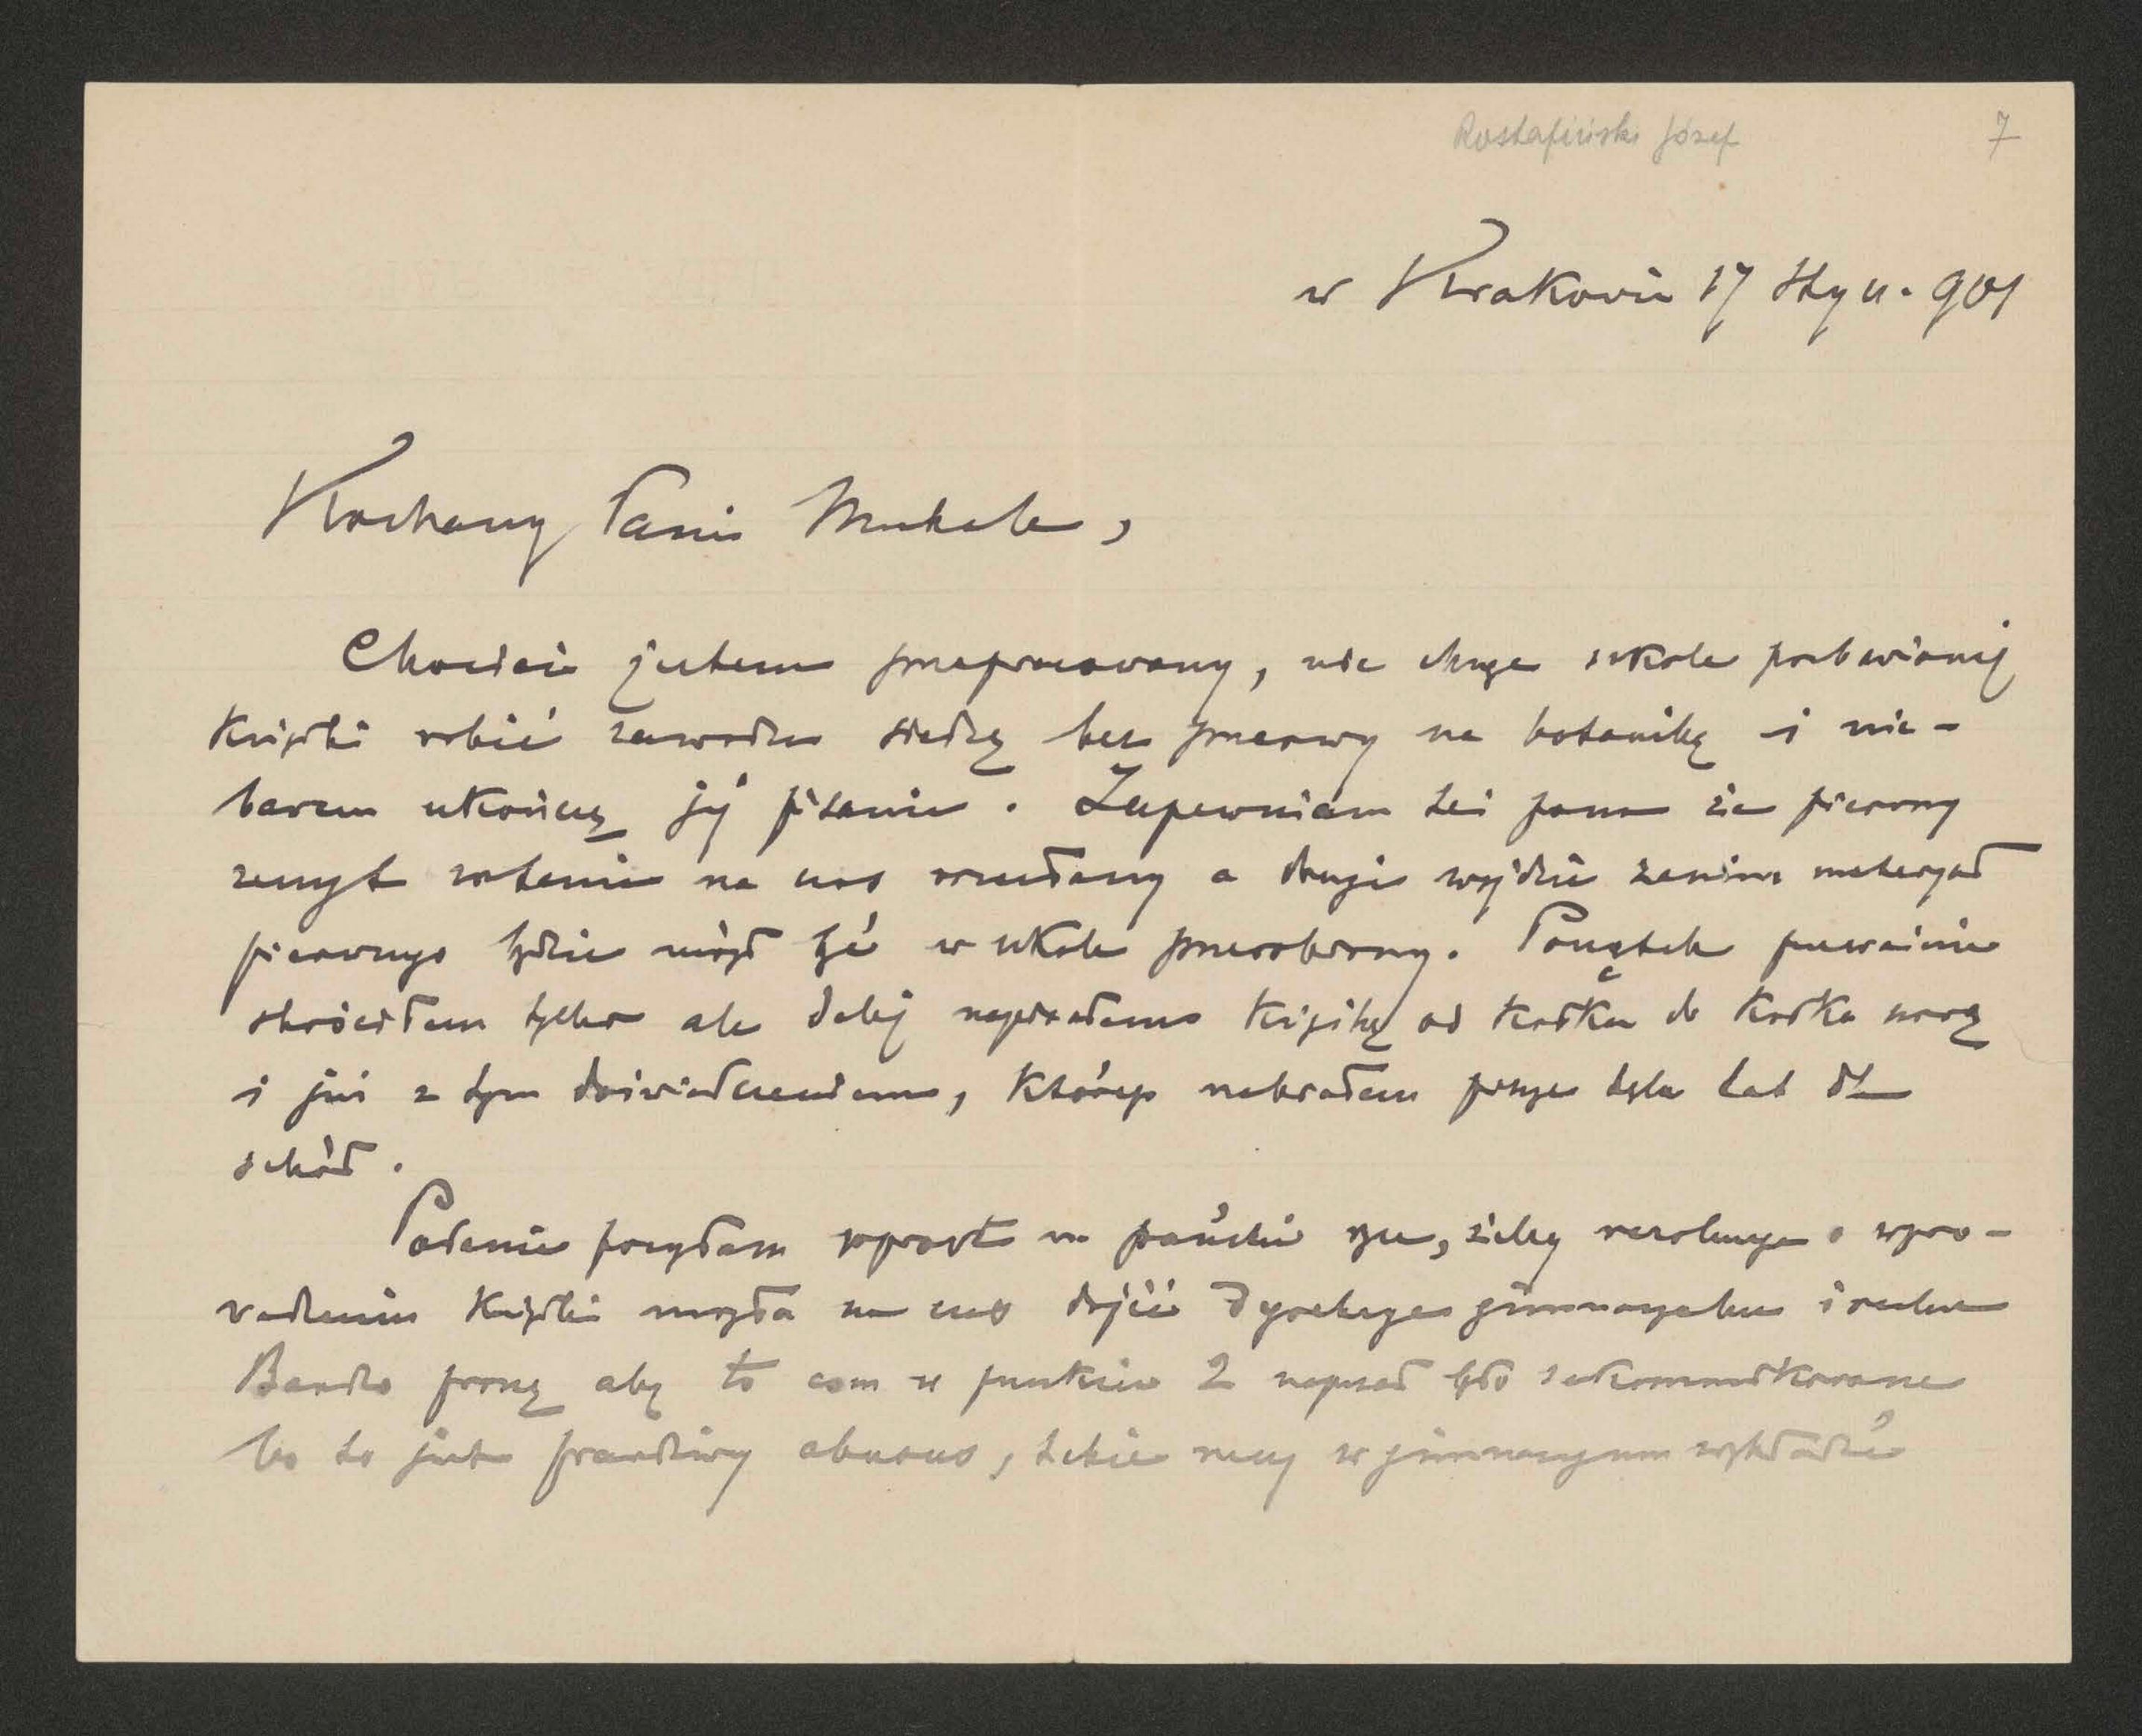 Rostafiński Józef 7
w Krakowie 17 Stycz. 901
Kochany Panie Michale,
Chociaż jestem przepracowany, nie chcąc szkole pozbawionej
książki robić zawodu siedzę bez przerwy na botaniką i nie-
bawem ukończę jej pisanie. Zapewniam też pana że pierwszy
zeszyt zostanie na czas rozesłany a drugi wyjdzie zanim materyał
pierwszego będzie mógł być w szkole przerobiony. Początek poważnie
skróciłem tylko ale dalej napisałem książkę od kodka do kodka nową
i już z tym doświadczeniem, którego nabrałem przez tyle lat dla
szkół.
Podanie posyłam wprost na pańskie ręce, żeby rezolucya o wpro-
wadzeniu książki mogła na czas dojść Dyrekcye gimnazyalne i realne
Bardzo proszę aby to com w punkcie 2 napisał było zakomunikowane
bo to jest prawdziwy abusus, takie rzeczy w gimnazyum wykładać